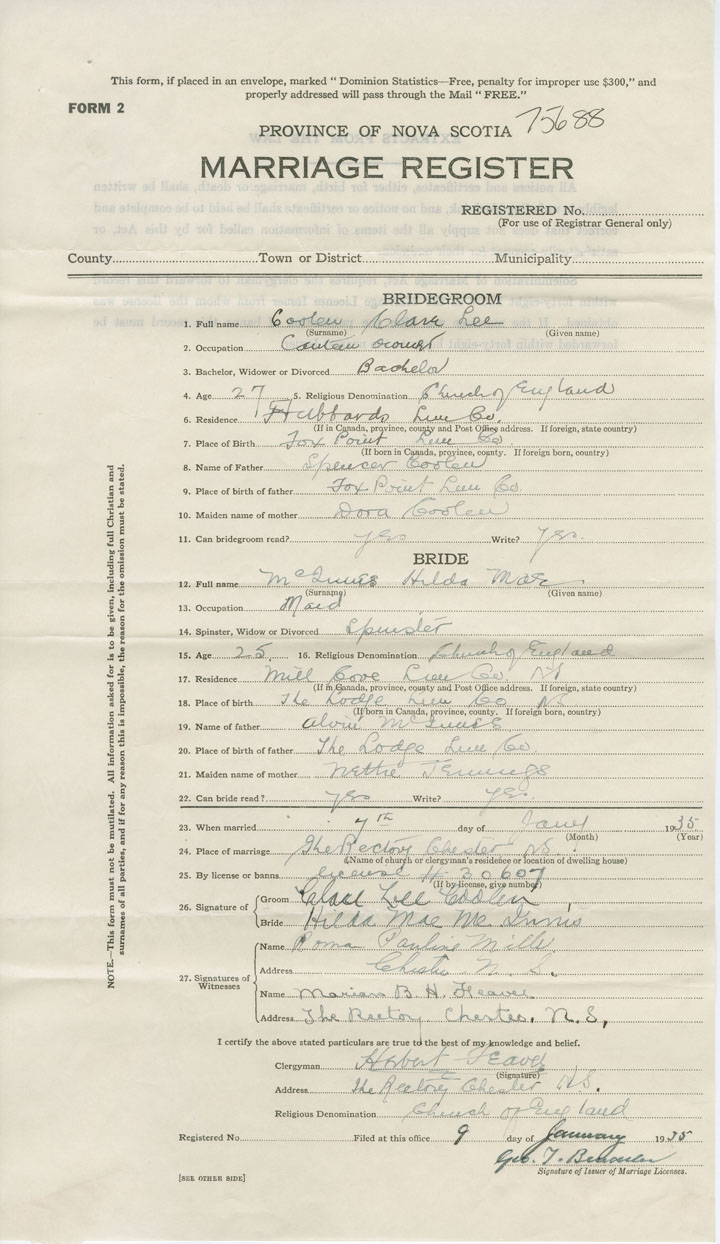 This form, if placed in an envelope, marked " Dominion Statistics—Free, penalty for improper use $300," and
properly addressed will pass through the Mail " FREE."
FORM 2
75688
PROVINCE OF NOVA SCOTIA
MARRIAGE REGISTER
REGISTERED No.
(For use of Registrar General only)
County Town or District Municipality
BRIDEGROOM
1. Full name Coolen Clare Lee
(Surname) (Given name)
2. Occupation Canteen
3. Bachelor, Widower or Divorced Bachelor
4. Age 27 5. Religious Denomination Church of England
6. Residence Hubbards Lun Co.
(If in Canada, province, county and Post Office address. If foreign, state country)
7. Place of Birth Fox Point Lun Co
(If born in Canada, province, county. If foreign born, country)
8. Name of Father Spencer Coolen
9. Place of birth of father Fox Point Lun Co.
10. Maiden name of mother Dora Coolen
11. Can bridegroom read? yes Write? yes.
BRIDE
12. Full name McInnis Hilda Mae
(Surname) (Given name)
13. Occupation Maid
14. Spinster, Widow or Divorced Spinster
15. Age 25. 16. Religious Denomination Church of England
17. Residence Mill Cove Lun Co. NS
(If in Canada, province, county and Post Office address. If foreign, state country)
18. Place of birth The Lodge Lun Co NS
(If born in Canada, province, county. If foreign born, country)
19. Name of father Alvin McInnis
20. Place of birth of father The Lodge Lun Co.
21. Maiden name of mother Nettie Jennings
22. Can bride read? yes Write? yes.
23. When married 7th day of Jany 1935
(Month) (Year)
24. Place of marriage The Rectory Chester NS.
(Name of church or clergyman's residence or location of dwelling house)
25. By license or banns license # 30607
(If by license, give number)
26. Signature of Groom Clare Lee Coolen
Bride Hilda Mae Mc Innis
27. Signatures of Witnesses
Name Roma Pauline Mills
Address Chester N. S.
Name Marian B. H. Feaver
Address The Rectory Chester, N.S,
I certify the above stated particulars are true to the best of my knowledge and belief.
Clergyman Herbert Feaver
(Signature)
Address The Rectory Chester NS.
Religious Denomination Church of England
Registered No. Filed at this office 9 day of January 1935
Geo. T.
Signature of Issuer of Marriage Licenses.
[SEE OTHER SIDE]
NOTE.—This form must not be mutilated. All information asked for is to be given, including full Christian and
surnames of all parties, and if for any reason this is impossible, the reason for the omission must be stated.